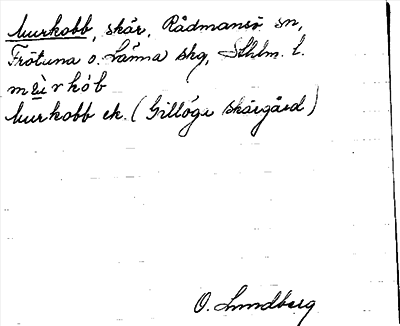 Murkobb, skär, Rådmansö sn,
Frötuna o. Länna skg, Sthlm. l.
Murkobb ek. (Gillöga skärgård)
O. Lundberg